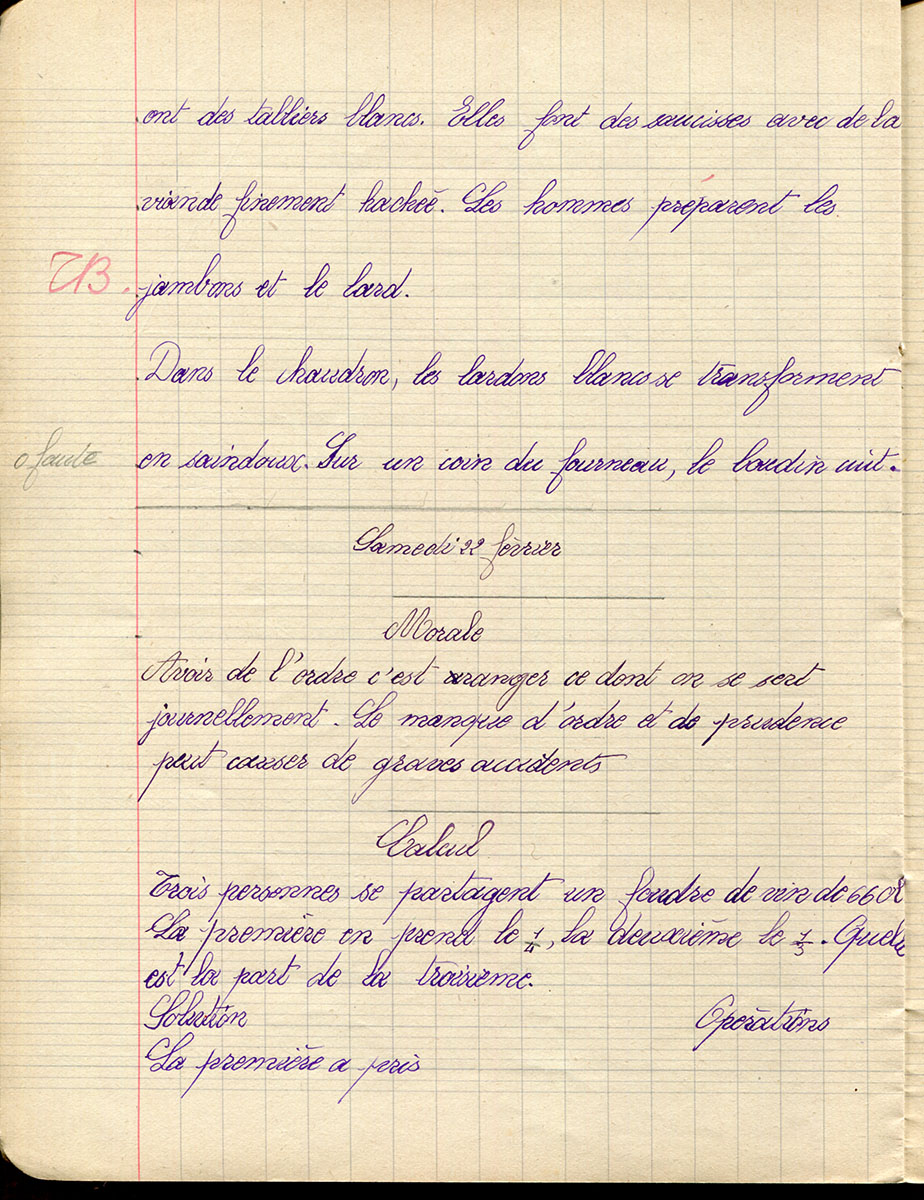 ont des tabliers blancs. Elles font des saucisses avec de la
viande finement hachée. Les hommes préparent les
TB.
jambons et le lard.
Dans le chaudron, les lardons blancs se transforment
0 faute
en saindoux. Sur un coin du fourneau, le boudin cuit.
Samedi 22 février
Morale
Avoir de l'ordre c'est ranger ce dont on se sert
journellement. Le manque d'ordre et de prudence
peut causer de graves accidents
Calcul
Trois personnes se partagent un foudre de vin de 660l
La première en prend le 1/4, la deuxième le 1/3. Quelle
est la part de la troisième.
Solution Opérations
La première a pris